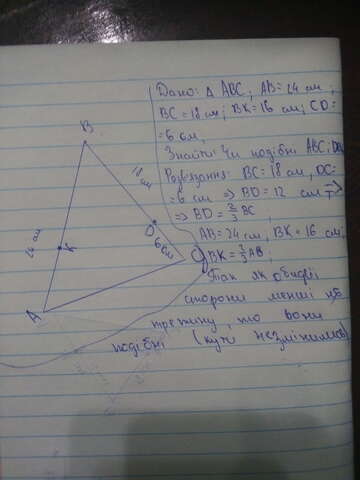 Дано: Δ ABC; AB = 24 см;
BC = 18 см; BK = 16 см; CD =
= 6 см.
Знайти: Чи подібні ABC i
Розвязання: BC = 18 см, DC =
= 6 см => BD = 12 см =>
=> BD = 2/3 BC;
AB = 24 см, BK = 16 см;
BK = 2/3 AB;
Так як обидві
сторони менші на
третину, то вони
подібні (кути незмінились)
B
18 см
D
6 см
C
24 см
K
A